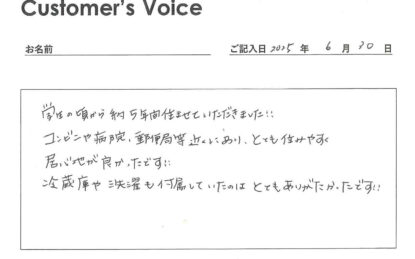 Customer's Voice
お名前
ご記入日 2025 年 6 月 30 日
学生の頃から約5年間住ませていただきました!!
コンビニや病院、郵便局等近くにあり、とても住みやすく
居心地が良かったです!!
冷蔵庫や洗濯も付属していたのはとてもありがたかったです!!